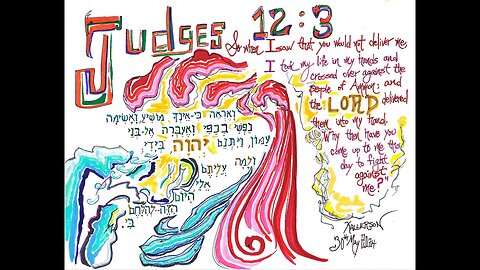 Judges 12:3
So when I saw that you would not deliver me,
I took my life in my hands and
crossed over against the
people of Ammon; and
the LORD delivered
them into my hand.
Why then have you
come up to me this
day to fight
against
me?"
וָאֶרְאֶה כִּי-אֵינְךָ מוֹשִׁיעַ, וָאָשִׂימָה
נַפְשִׁי בְכַפִּי וָאֶעְבְּרָה אֶל-בְּנֵי
עַמּוֹן, וַיִּתְּנֵם יְהוָה בְּיָדִי
וְלָמָה
עֲלִיתֶם
אֵלַי
הַיּוֹם
הַזֶּה--לְהִלָּחֶם
בִּי.
30th May